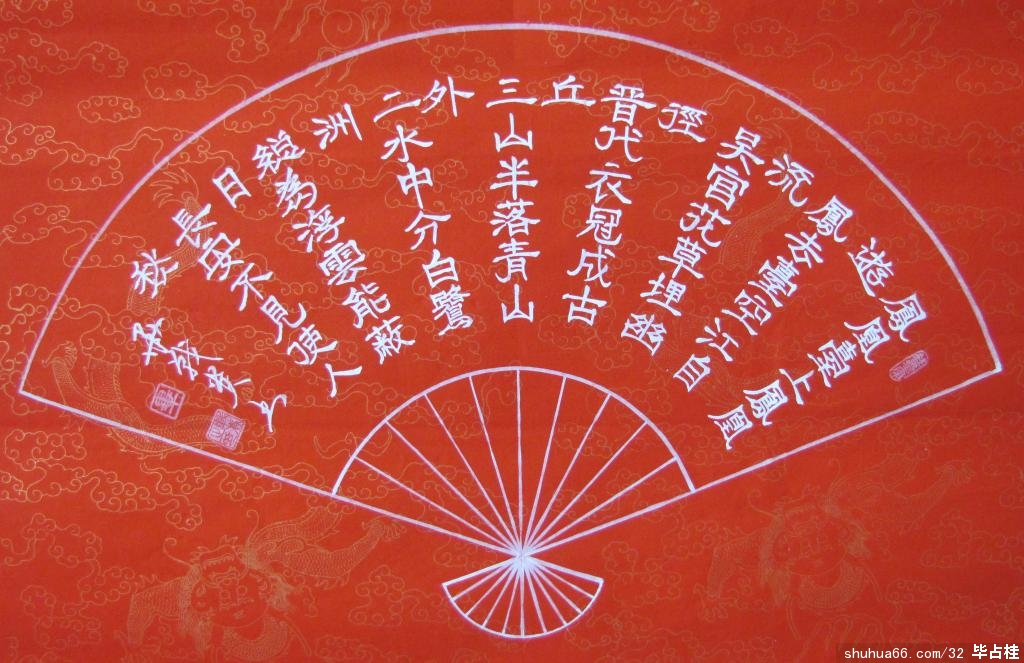 鳳凰臺上鳳凰
遊
鳳去臺空江自
流
吴宮花草埋幽
徑
晉代衣冠成古
丘
三山半落青山
外
二水中分白鷺
洲
總為浮雲能蔽
日
長安不見使人
愁
shuhua66.com/32 毕占桂